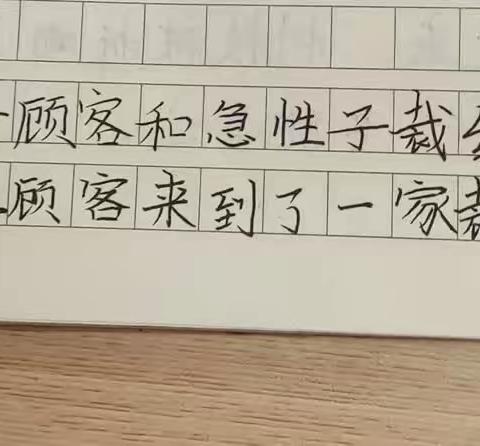 顾客和急性子裁
顾客来到了一家裁